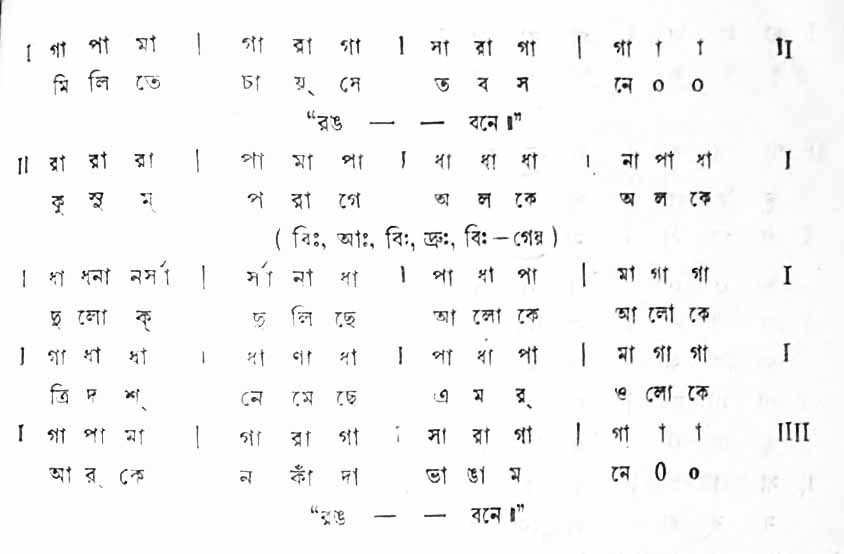 I গা পা মা | গা রা গা I সা রা গা | গা া া II
মি লি তে চা য়্ সে ত ব স নে ০ ০
“রঙ — — বনে॥”
II রা রা রা | পা মা পা I ধা ধা ধা | না পা ধা I
কু সু ম্ প রা গে অ ল কে অ ল কে
( বিঃ, আঃ, বিঃ, দ্রুঃ, বিঃ – গেয় )
I ধা ধনা নর্সা | র্সা না ধা I পা ধা পা | মা গা গা I
দু লো ক্ দু লি ছে আ লো কে আ লো কে
I গা ধা ধা | ধা ণা ধা I পা ধা পা | মা গা গা I
ত্রি দ শ্ নে মে ছে এ ম র্ ও লো কে
I গা পা মা | গা রা গা I সা রা গা | গা া া IIII
আ র্ কে ন কাঁ দা ভা ঙা ম নে ০ ০
“রঙ — — বনে॥”